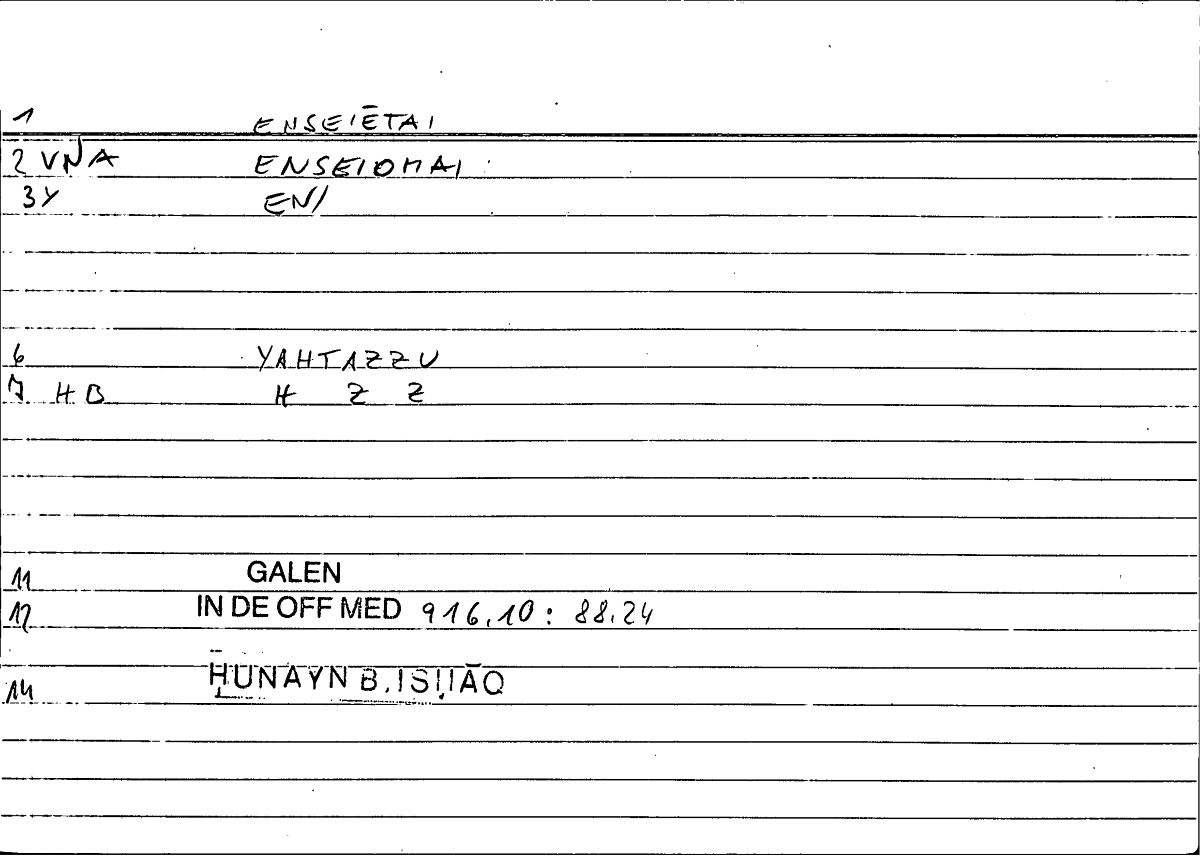 1 ENSEIĒTAI
2 VNA ENSEIOMAI
3Y EN/
6 YAHTAZZU
7 HB H Z Z
11 GALEN
12 IN DE OFF MED 916.10: 88.24
14 ḤUNAYN B. ISḤĀQ